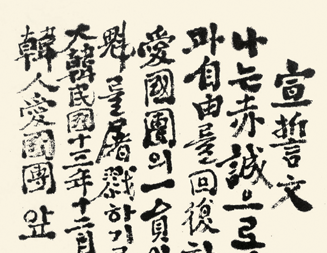 宣誓文
나는赤誠으로
와自由를回復하
愛國團의一員이
魁를屠戮하기
大韓民國十三年十二月
韓人愛國團앞